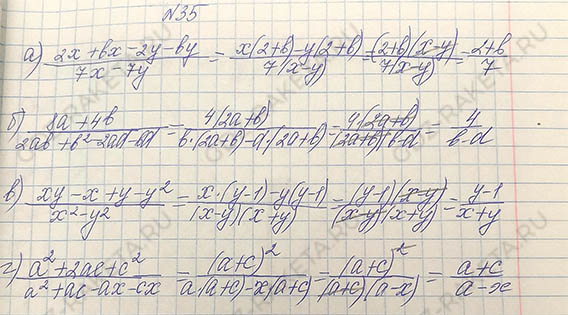 №35
а) (2x+bx-2y-by)/(7x-7y) = (x(2+b)-y(2+b))/(7(x-y)) = ((2+b)(x-y))/(7(x-y)) = (2+b)/7
б) (8a+4b)/(2ab+b²-2ad-bd) = (4(2a+b))/(b·(2a+b)-d·(2a+b)) = (4(2a+b))/((2a+b)(b-d)) = 4/(b-d)
в) (xy-x+y-y²)/(x²-y²) = (x·(y-1)-y(y-1))/((x-y)(x+y)) = ((y-1)(x-y))/((x-y)(x+y)) = (y-1)/(x+y)
г) (a²+2ac+c²)/(a²+ac-ax-cx) = (a+c)²/(a(a+c)-x(a+c)) = (a+c)²/((a+c)(a-x)) = (a+c)/(a-x)